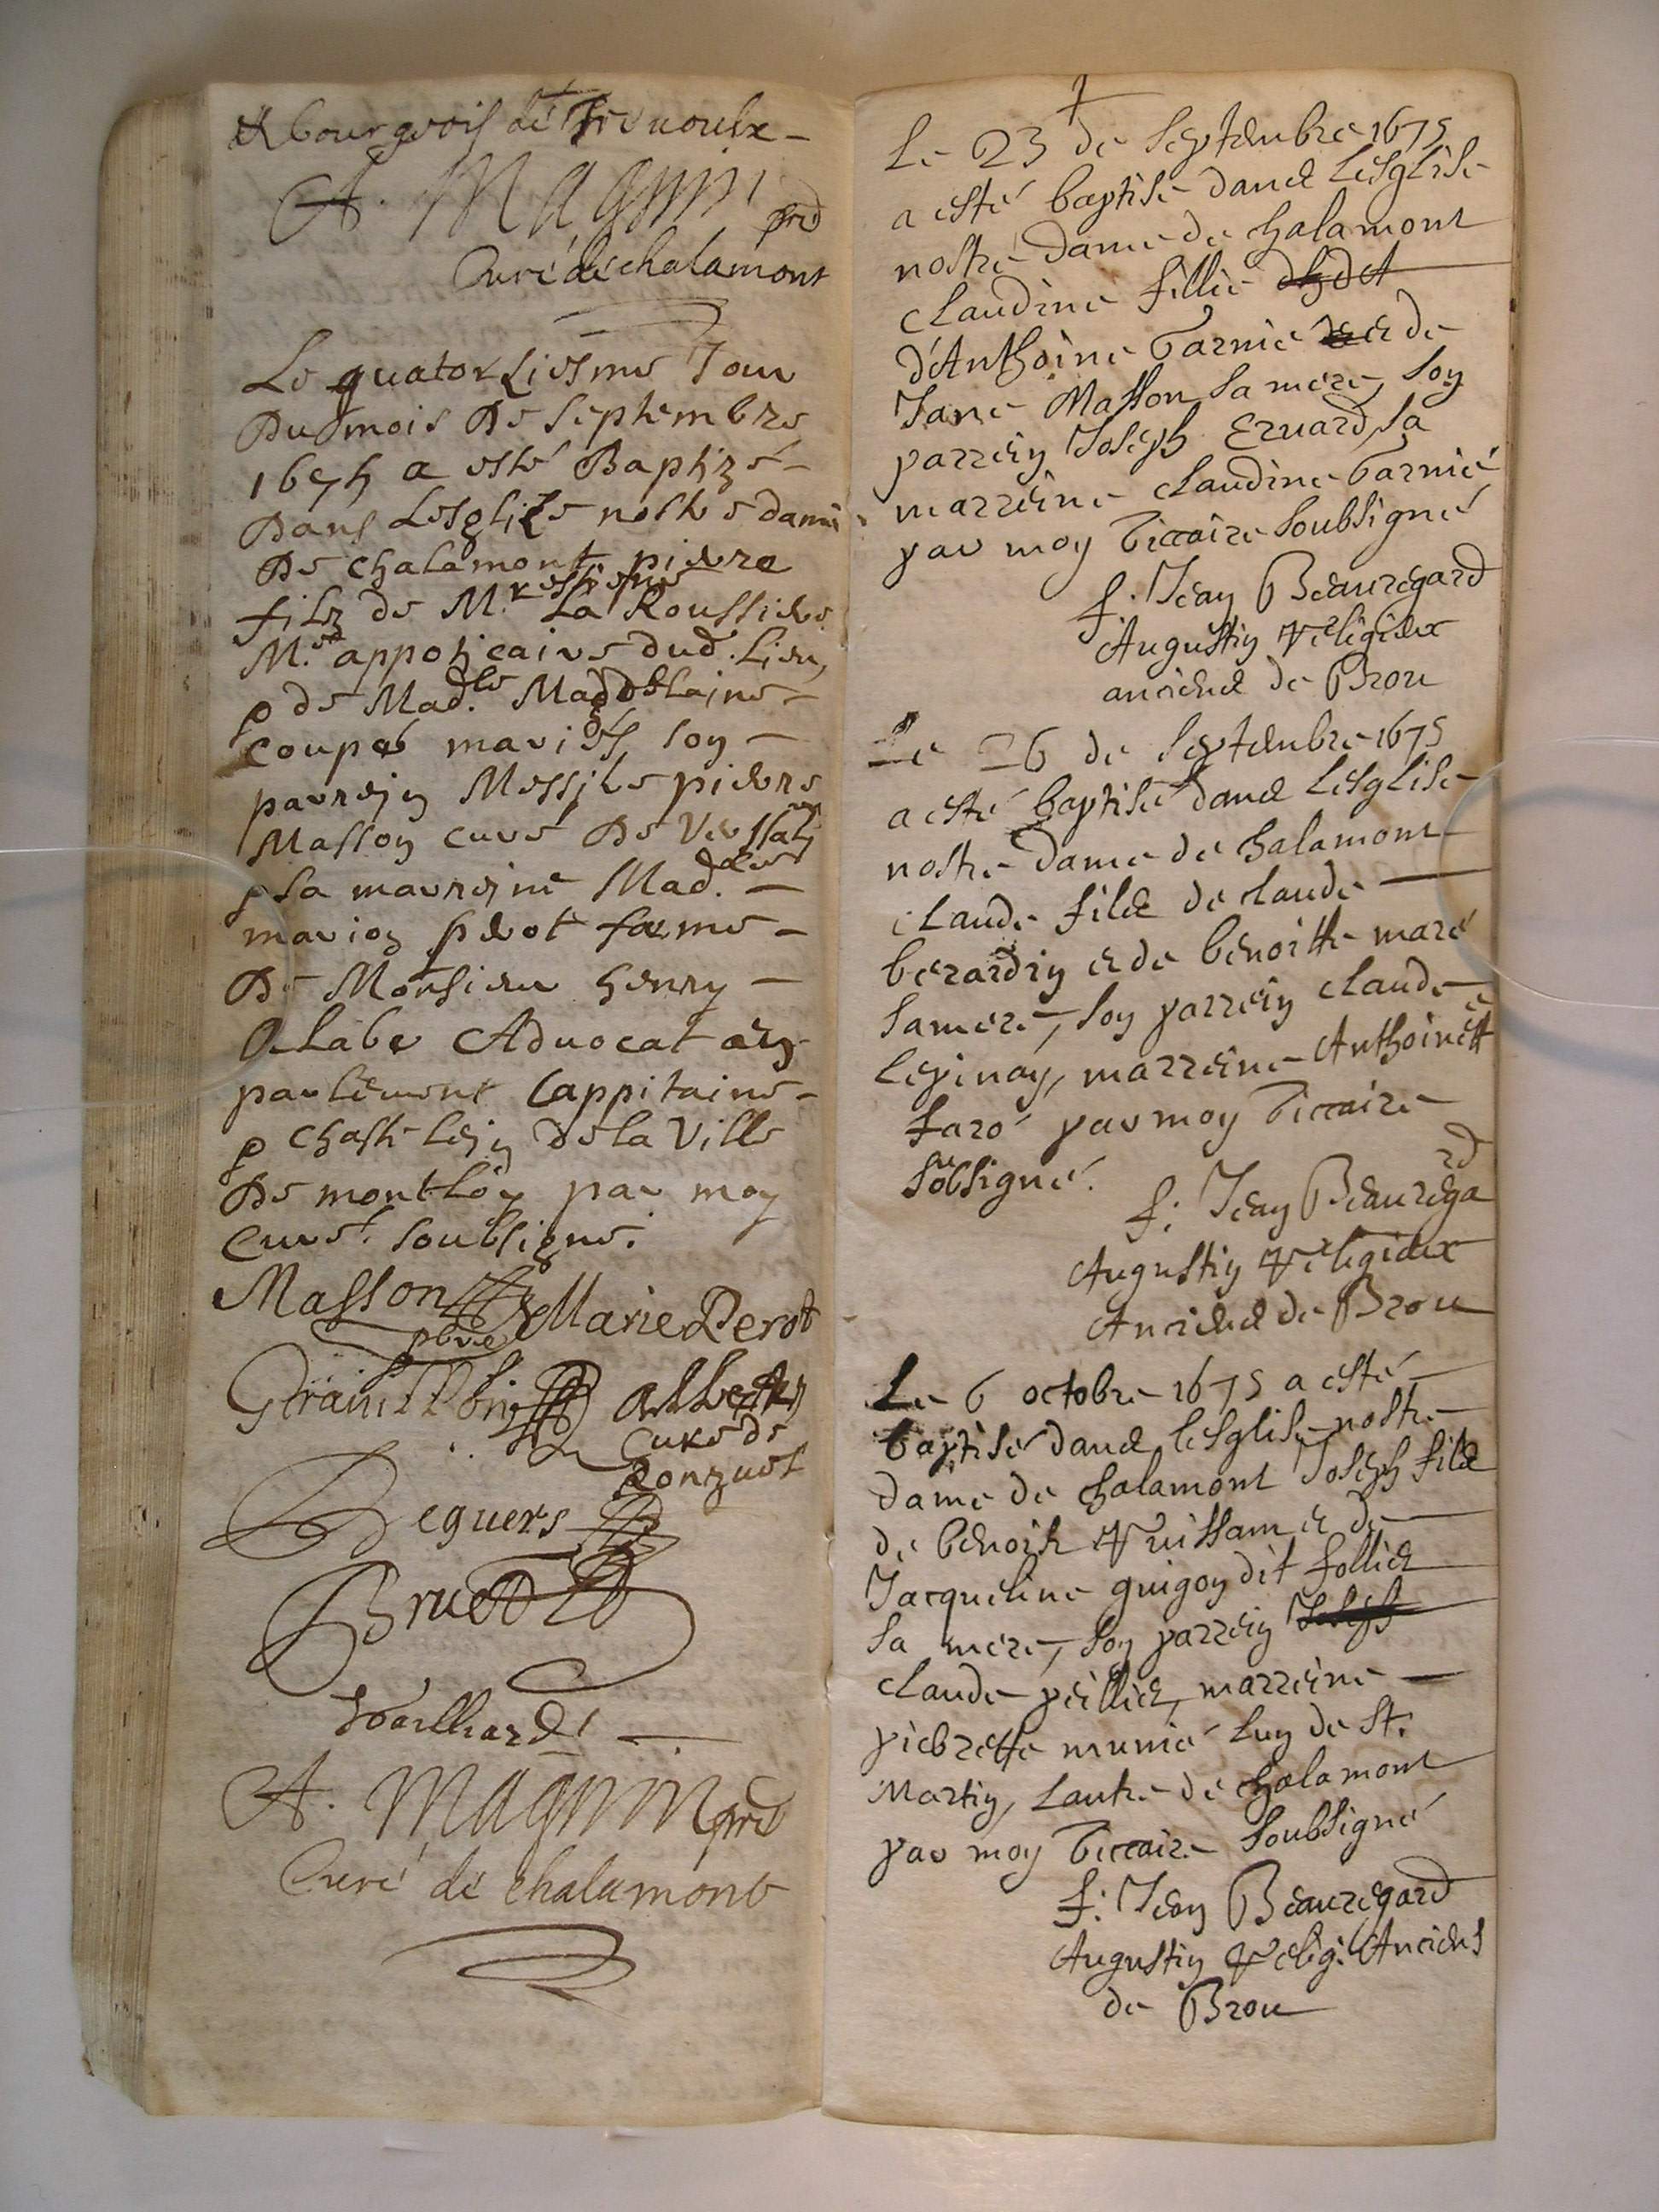 & bourgeois de
A. Magnin pre
Curé de chalamont
Le quatorziesme Jour
Du mois De septembre
1675 a esté Baptizé
Dans Lesglize nostre dame
De chalamont pierre
filz de M.r estienne La Roussiere
M.e appoticaire dud. Lieu,
& de Mad.le Magdelaine
mariés, son
parrein Messire pierre
Masson curé De
& sa marreine Mad.elle
marion perot femme
De Monsieur henry
Alabe Advocat en
parlement Cappitaine
& Chastelein de la Ville
De montlöy par moy
Curé soubsigné.
Masson Marie Perot
pbre
Curé de
Deguers
Bruet
A. Magnin pre
Curé de chalamont
Le 23 de septembre 1675
a esté baptisé dans lesglise
nostre dame de chalamont
claudine fillie
d'Anthoine Varnie et de
Jane Masson sa mere, son
parrein Joseph Ervard, sa
marreine claudine Varnié
par moy viccaire soubsigné
f. Jean Beauregard
Augustin religieux
anciens de Brou
Le 26 de septembre 1675
a esté baptisé dans lesglise
nostre dame de chalamont
claude fils de claude
berardin et de benoitte maré
sa mere, son parrein claude
lepinay, marreine Anthoinette
faró par moy viccaire
soubsigné.
f: Jean Beauregard
Augustin religieux
Anciens de Brou
Le 6 octobre 1675 a esté
baptisé dans lesglise nostre
dame de chalamont Joseph fils
de benoist Vuissam et de
Jacqueline guigon dit follies
sa mere, son parrein Joseph
claude peillies, marreine
piebrette munié lun de St.
Martin, lautre de chalamont
par moy viccaire soubsigné
f: Jean Beauregard
Augustin relig. Anciens
de Brou